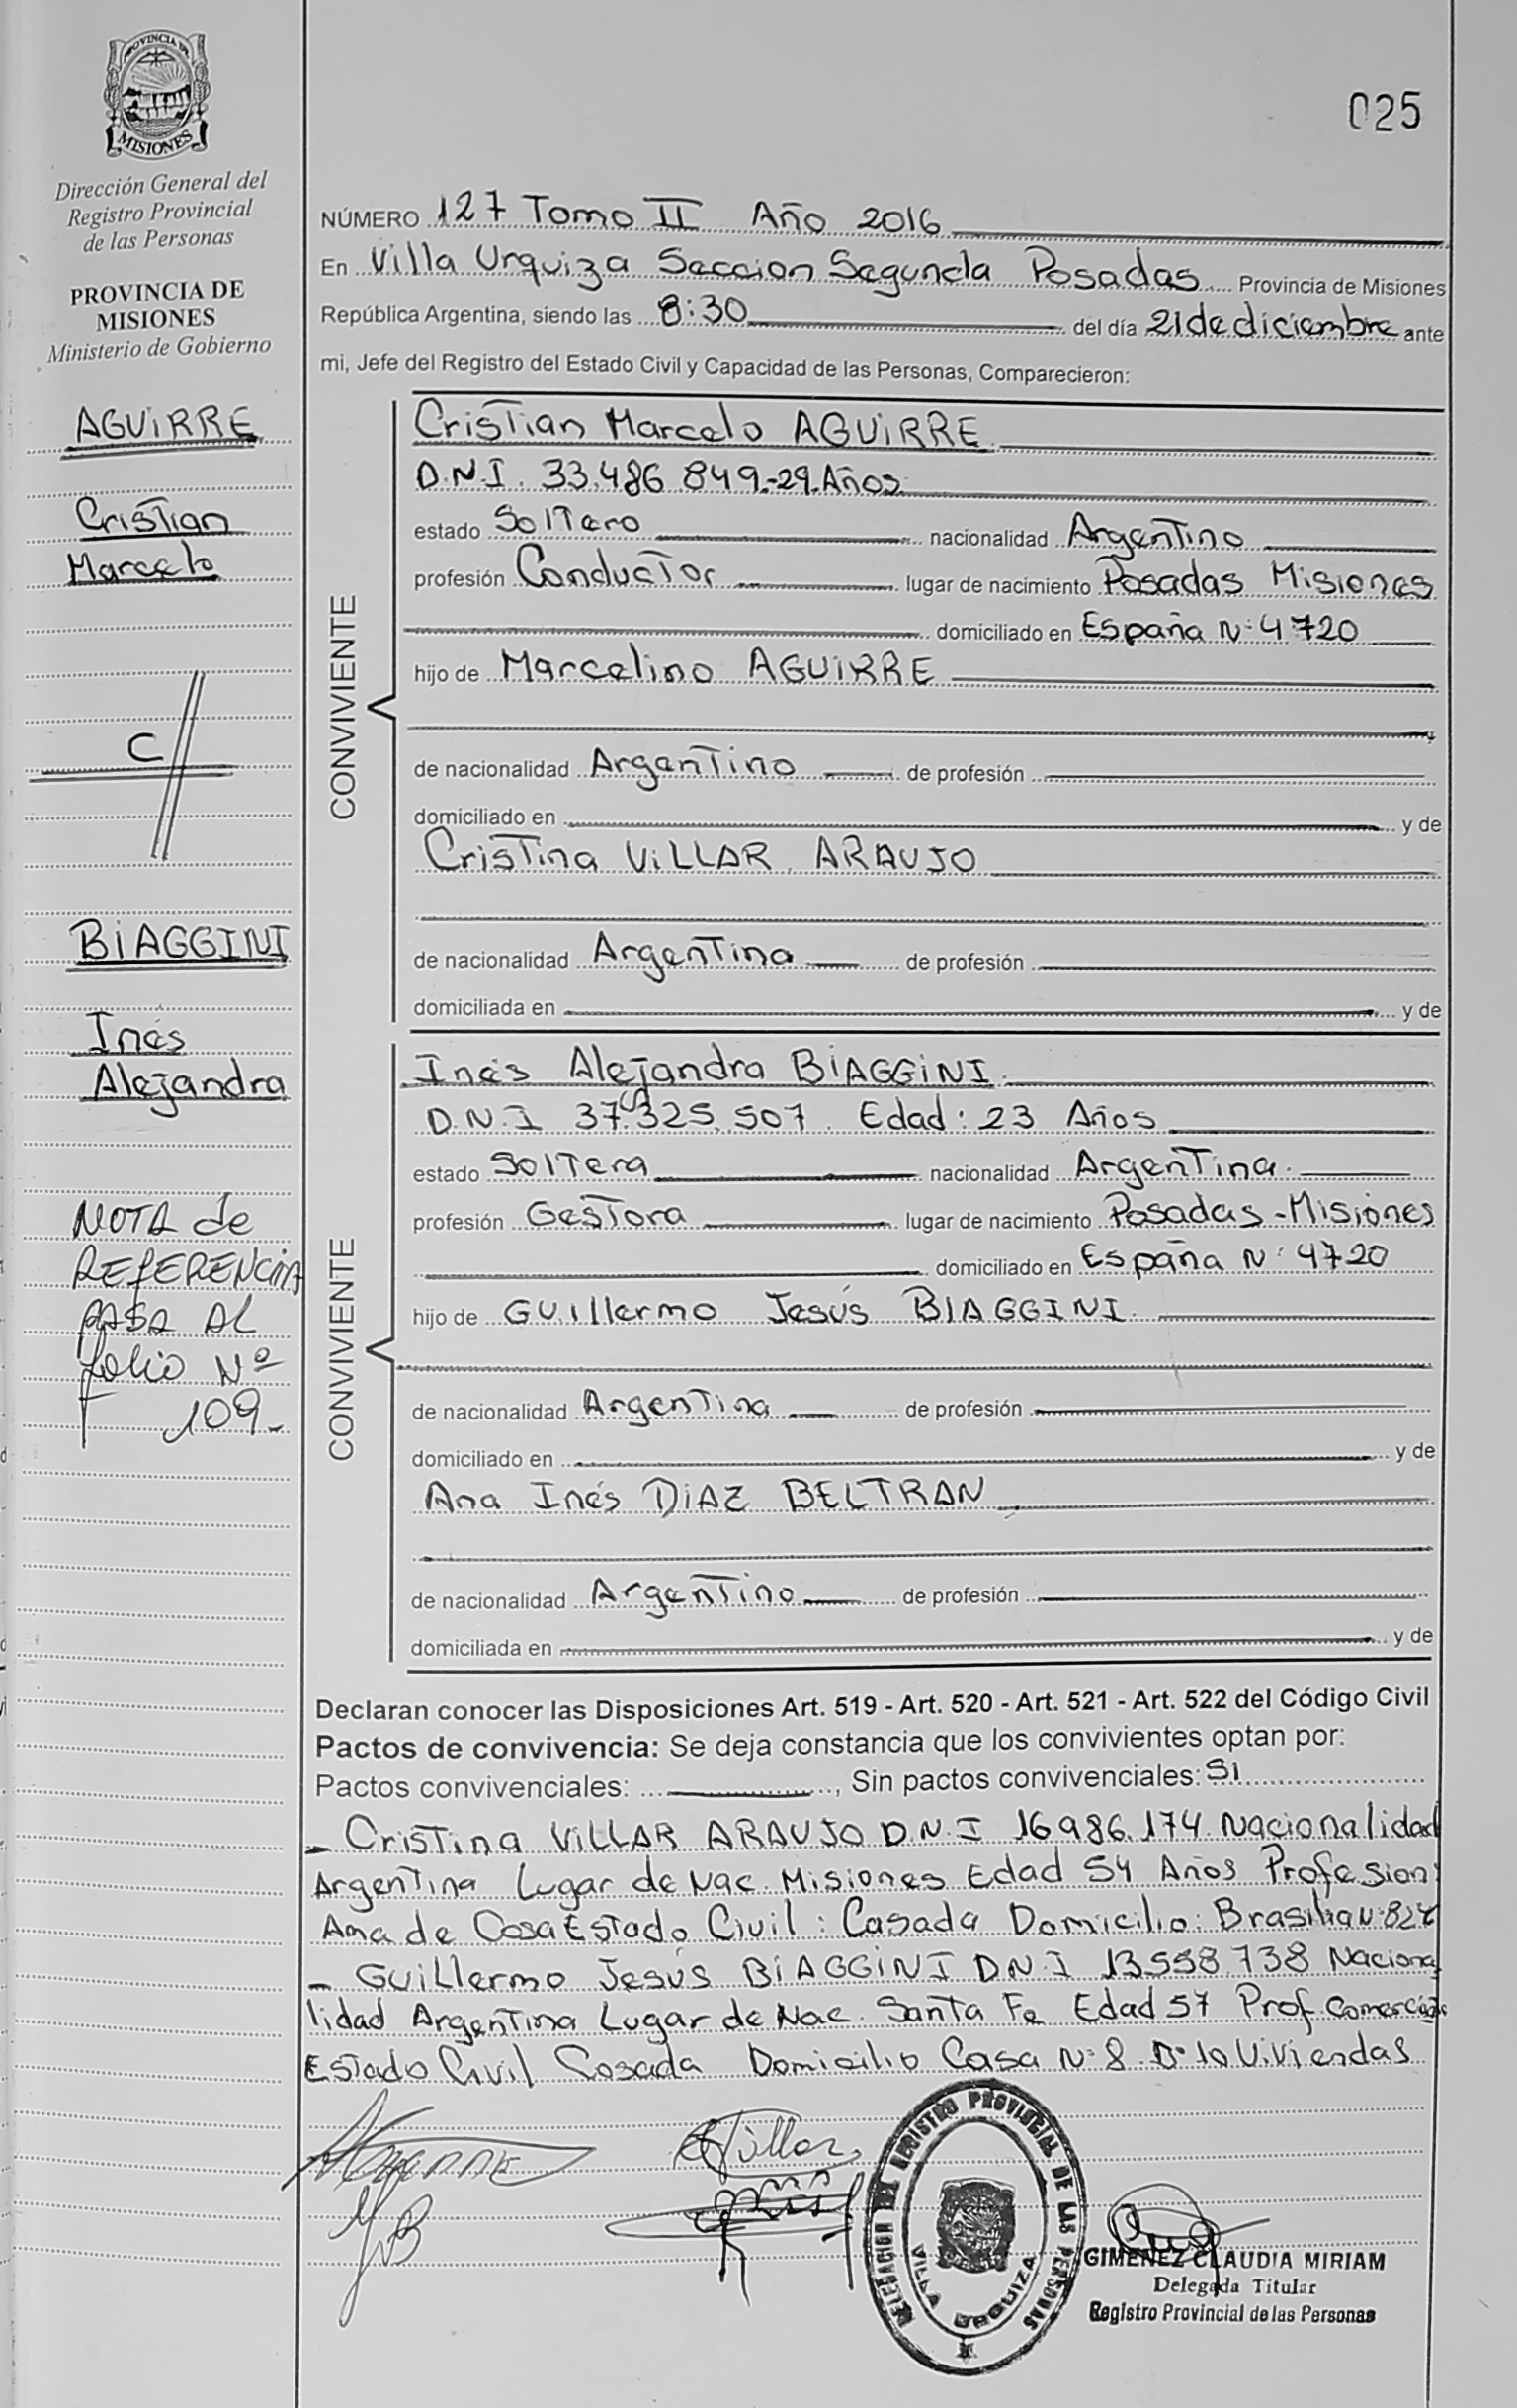 PROVINCIA DE
MISIONES
Dirección General del
Registro Provincial
de las Personas
PROVINCIA DE
MISIONES
Ministerio de Gobierno
AGUIRRE
Cristian
Marcelo
C
BIAGGINI
Inés
Alejandra
NOTA de
REFERENCIA
PASA AL
folio Nº
109-
025
NÚMERO 127 Tomo II Año 2016
En Villa Urquiza Seccion Segunda Posadas Provincia de Misiones
República Argentina, siendo las 8:30 del día 21 de diciembre ante
mi, Jefe del Registro del Estado Civil y Capacidad de las Personas, Comparecieron:
CONVIVIENTE
Cristian Marcelo AGUIRRE
D.N.I. 33.486.849.-29.Años
estado Soltero nacionalidad Argentino
profesión Conductor lugar de nacimiento Posadas Misiones
domiciliado en España N: 4720
hijo de Marcelino AGUIRRE
de nacionalidad Argentino de profesión
domiciliado en y de
Cristina VILLAR ARAUJO
de nacionalidad Argentina de profesión
domiciliada en y de
CONVIVIENTE
Inés Alejandra BIAGGINI
D.N.I 37.325.507. Edad: 23 Años
estado Soltera nacionalidad Argentina.
profesión Gestora lugar de nacimiento Posadas-Misiones
domiciliado en España N: 4720
hijo de Guillermo Jesús BIAGGINI
de nacionalidad Argentina de profesión
domiciliado en y de
Ana Inés DIAZ BELTRAN
de nacionalidad Argentino de profesión
domiciliada en y de
Declaran conocer las Disposiciones Art. 519 - Art. 520 - Art. 521 - Art. 522 del Código Civil
Pactos de convivencia: Se deja constancia que los convivientes optan por:
Pactos convivenciales: , Sin pactos convivenciales: SI
- Cristina VILLAR ARAUJO D.N.I 16986.174 Nacionalidad
Argentina Lugar de Nac. Misiones Edad 54 Años Profesion:
Ama de Casa Estado Civil: Casada Domicilio: Brasilia N:
- Guillermo Jesús BIAGGINI D.N.I 13558.738 Naciona
lidad Argentina Lugar de Nac. Santa Fe Edad 57 Prof.
Estado Civil Casada Domicilio Casa N: 8 10 Viviendas
DELEGACION DEL REGISTRO PROVINCIAL DE LAS PERSONAS
VILLA URQUIZA
GIMENEZ CLAUDIA MIRIAM
Delegada Titular
Registro Provincial de las Personas